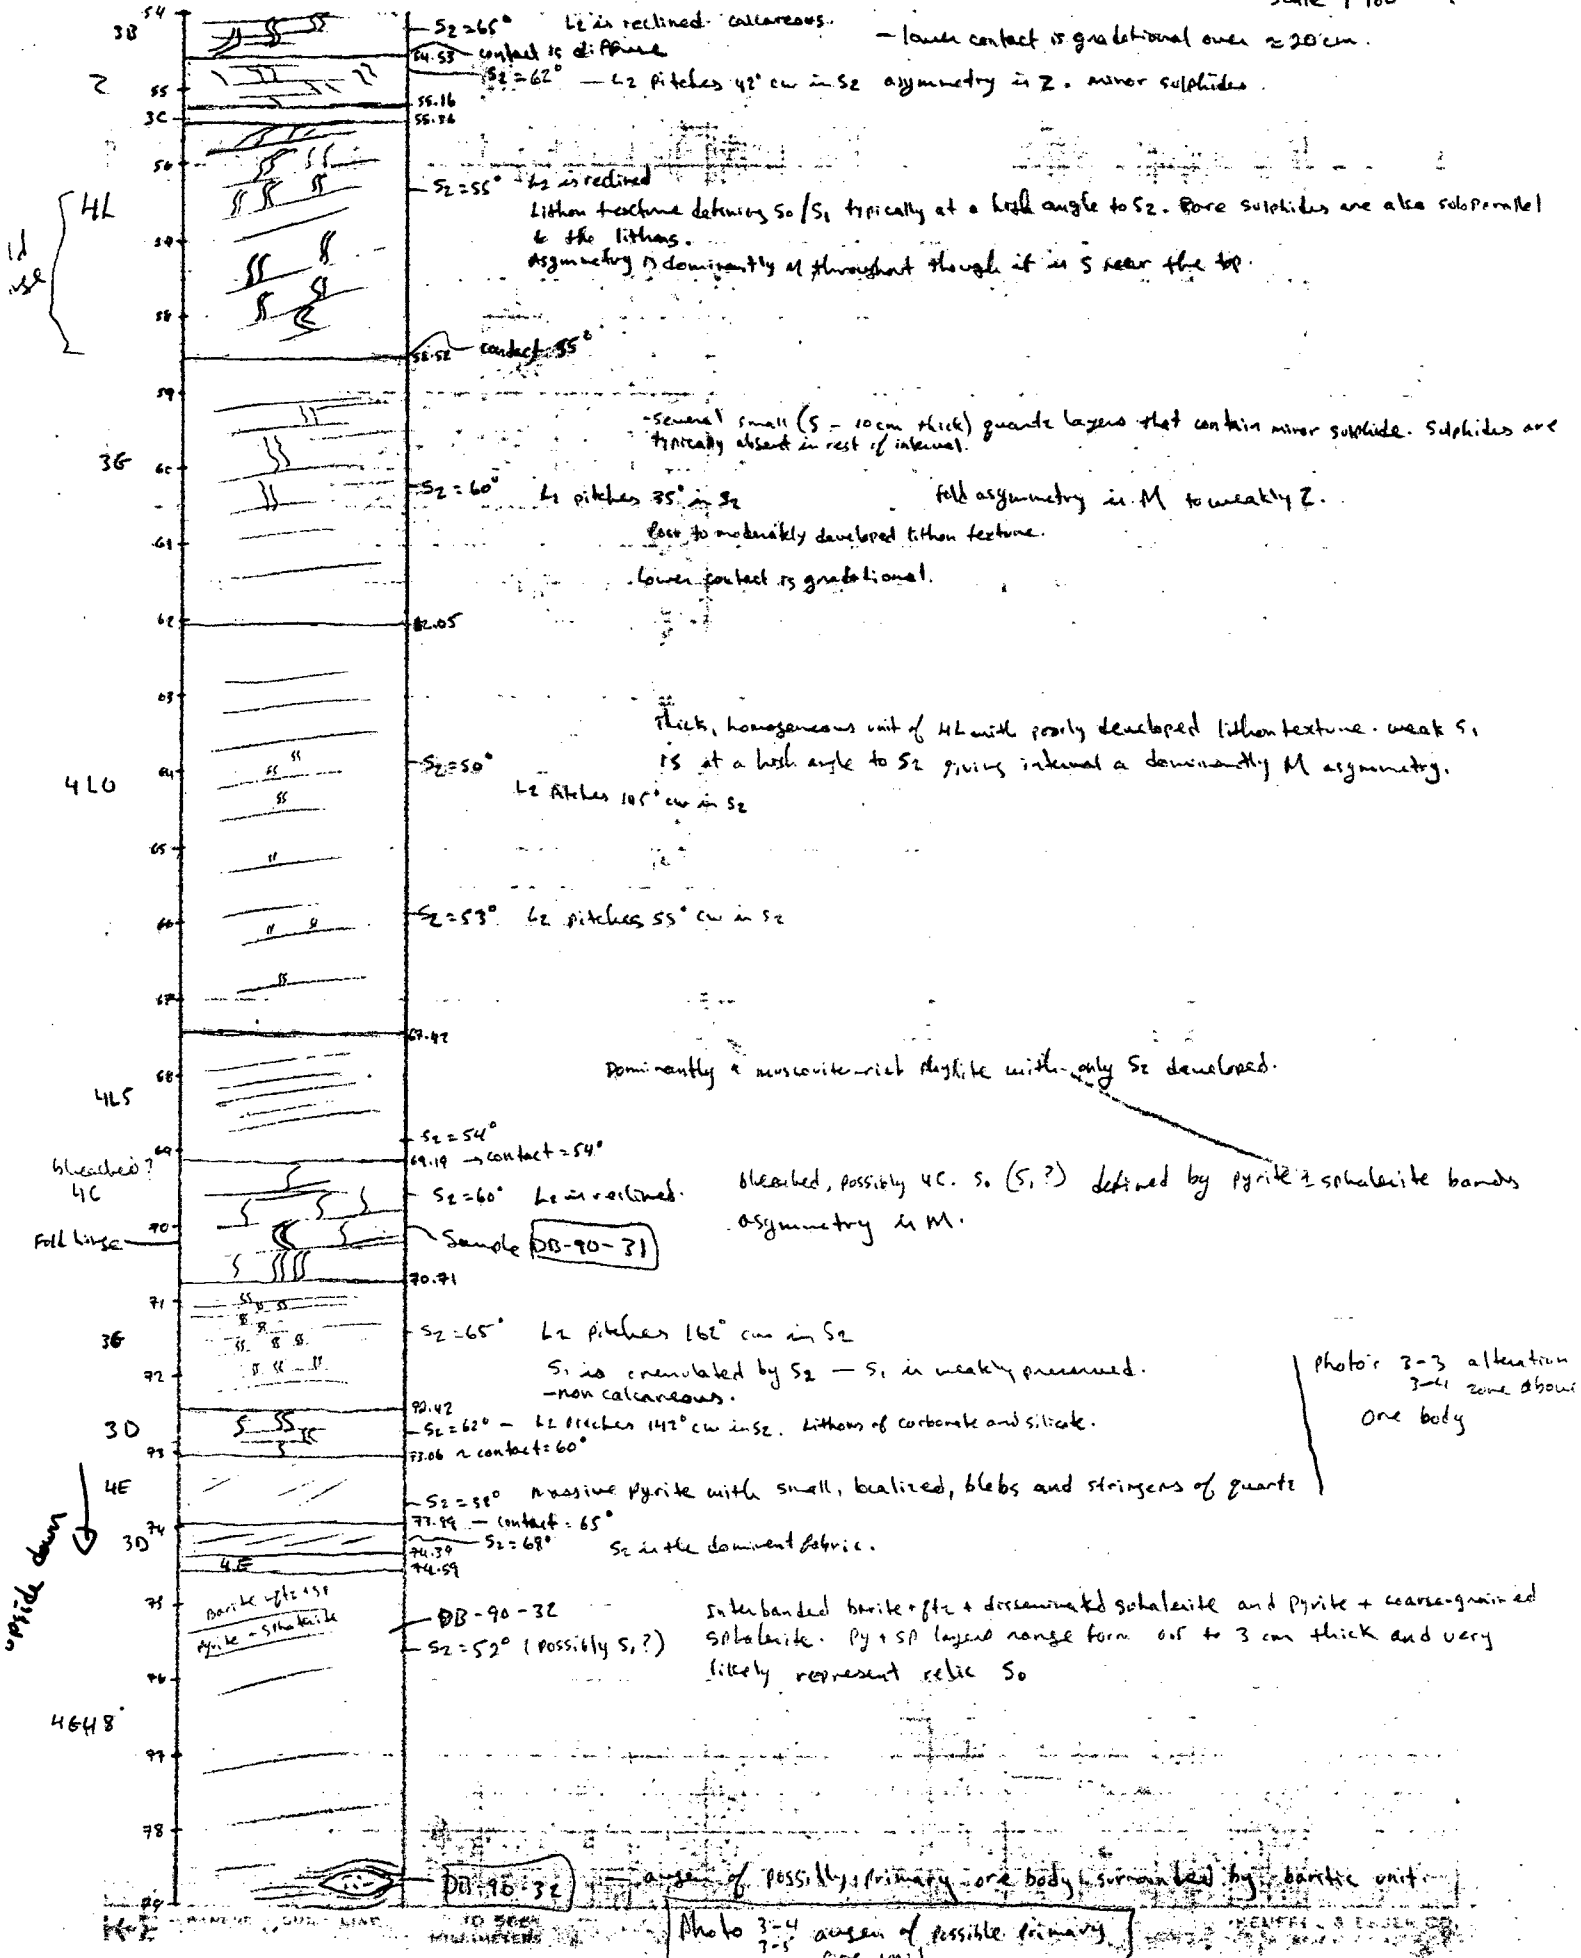 Scale 1:100
54
3B
S2=65° L2 is reclined. calcareous.
- lower contact is gradational over ≈ 20 cm.
54.53 contact is diffuse
Z
S2=62° — L2 pitches 42° cw in S2 asymmetry is Z. minor sulphides.
55
55.16
3C
55.36
56
4L
S2=55° L2 is reclined
Lithon texture defining S0/S1 typically at a high angle to S2. Rare sulphides are also subparallel
to the lithons.
Asymmetry is dominantly M throughout though it is S near the top.
58
58.52 contact = 55°
59
- Several small (5 - 10cm thick) quartz layers that contain minor sulphide. Sulphides are
typically absent in rest of interval.
3G
60
S2 = 60° L2 pitches 35° in S2 fold asymmetry is M to weakly Z.
61
Poor to moderately developed lithon texture.
lower contact is gradational.
62
62.05
63
Thick, homogeneous unit of 4L with poorly developed lithon texture. weak S1
64
S2=50°
is at a high angle to S2 giving interval a dominantly M asymmetry.
4L0
L2 Pitches 105° cw in S2
65
66
S2=53° L2 pitches 55° cw in S2
67
67.42
Dominantly a muscovite-rich phyllite with only S2 developed.
68
4L5
S2=54°
69
69.19 → contact = 54°
bleached?
4C
S2=60° L2 is reclined.
bleached, possibly 4C. S0 (S1?) defined by pyrite ± sphalerite bands
asymmetry is M.
70
Fold hinge
Sample DB-90-31
70.71
71
3G
S2=65° L2 pitches 162° cw in S2
S1 is crenulated by S2 — S1 is weakly preserved.
72
- non calcareous.
Photo's 3-3 alteration
3-4 zone above
ore body
72.42
3D
S2=62° - L2 pitches 142° cw in S2. Lithons of carbonate and silicate.
73
73.06 ~ contact = 60°
4E
S2=38° massive pyrite with small, localized, blebs and stringers of quartz
74
73.99 — contact = 65°
3D
S2=68° S2 is the dominant fabric.
74.39
4E
74.59
upside down
75
Barite + qtz + sp
pyrite - sphalerite
DB-90-32
Interbanded barite + qtz + disseminated sphalerite and pyrite + coarse-grained
S2=52° (possibly S1?)
sphalerite. Py + SP layers range form 0.5 to 3 cm thick and very
likely represent relic S0
76
4GH8
77
78
DB-90-32 — augen of possibly primary ore body surrounded by baritic unit.
Photo 3-4 augen of possible primary
3-5 ore unit